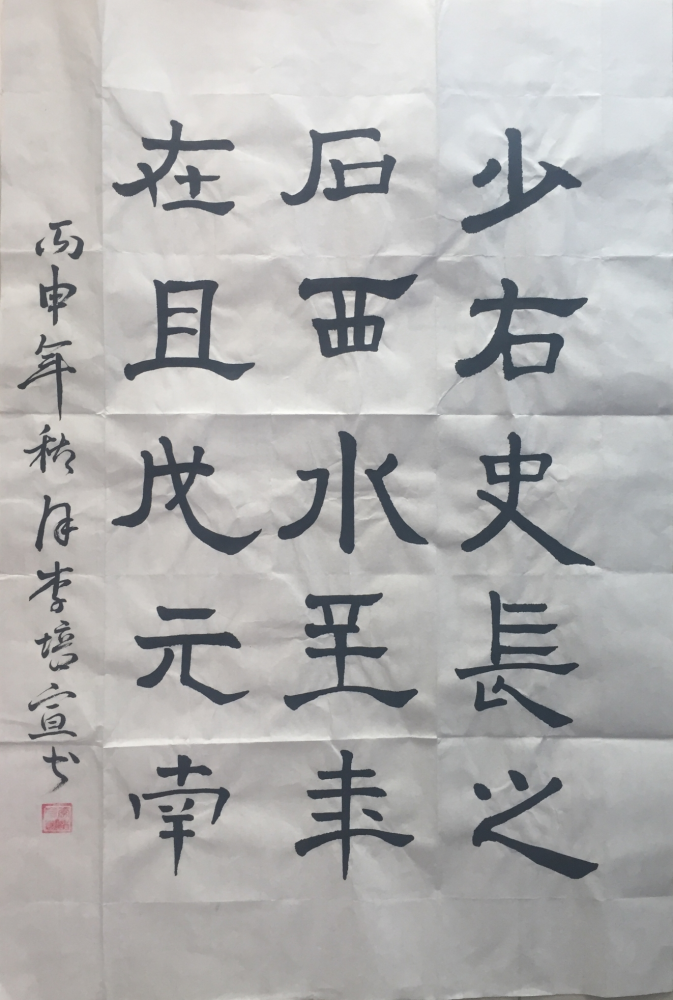 少右史長之
石西水至年
在且戊元南
丙申年秋月李培宣书